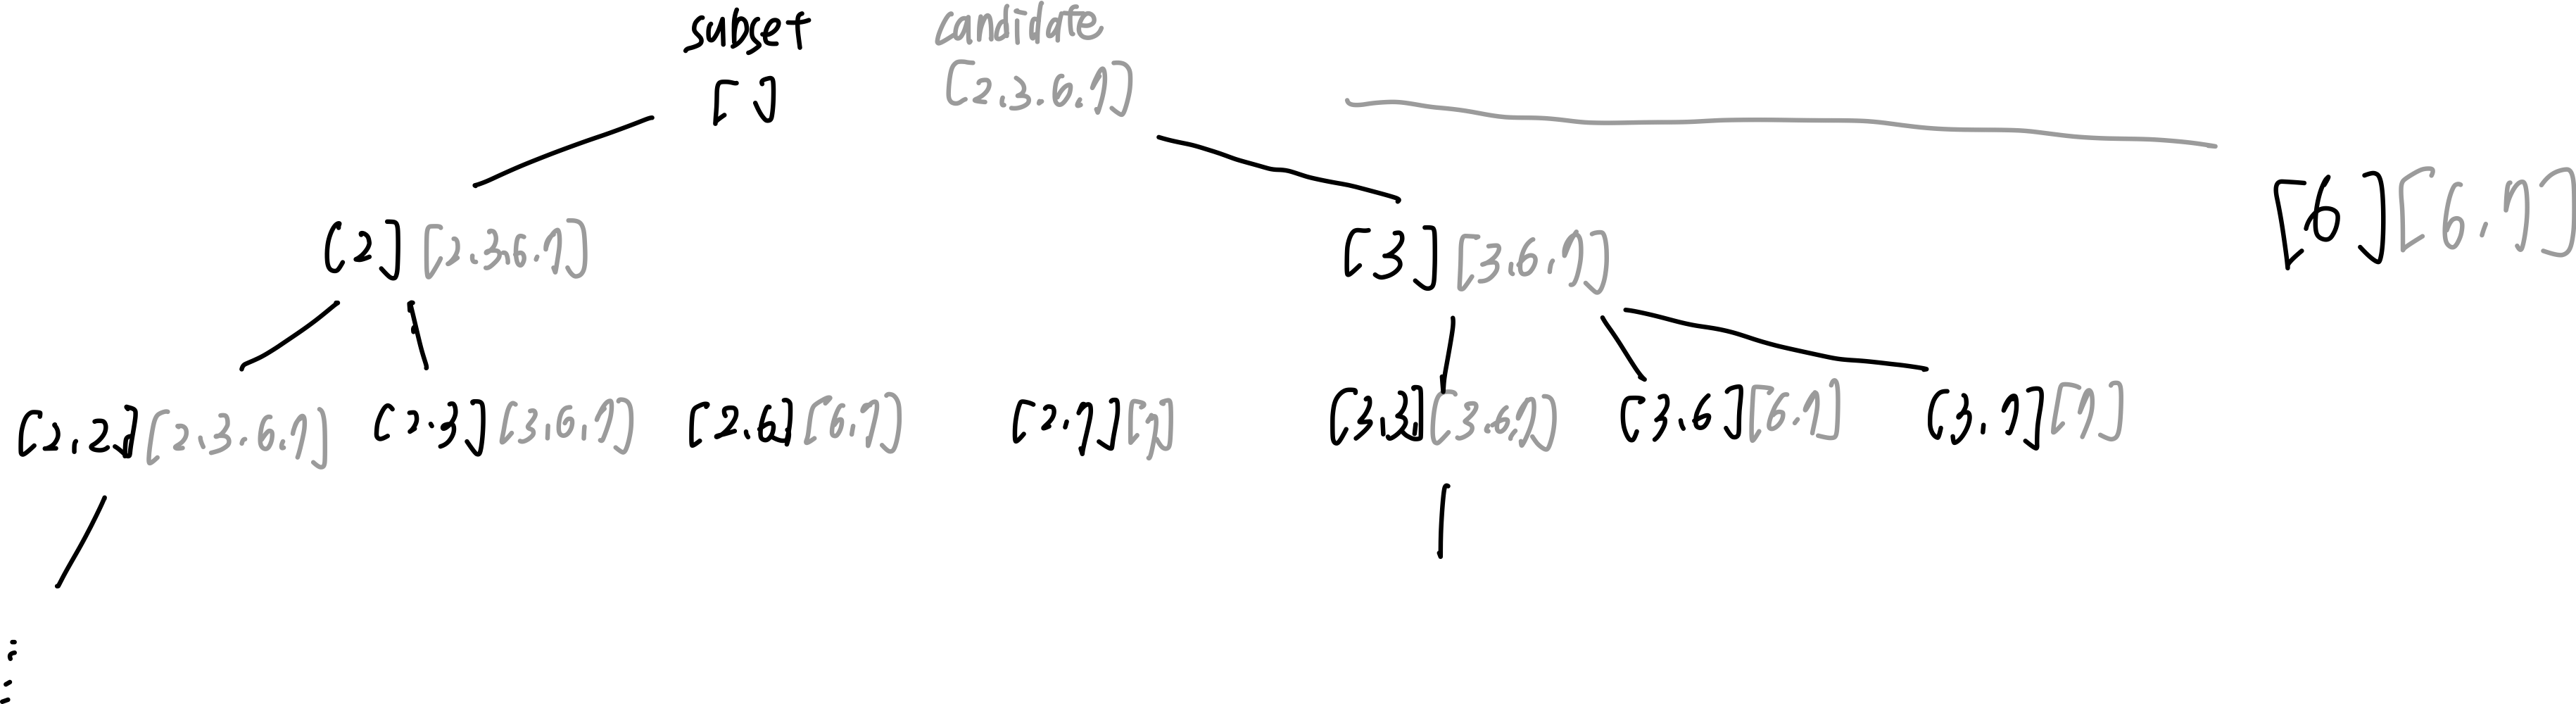 subset candidate
[ ] [2,3,6,7]
[2] [2,3,6,7] [3] [3,6,7] [6] [6,7]
[2,2] [2,3,6,7] [2,3] [3,6,7] [2,6] [6,7] [2,7] [7] [3,3] [3,6,7] [3,6] [6,7] [3,7] [7]